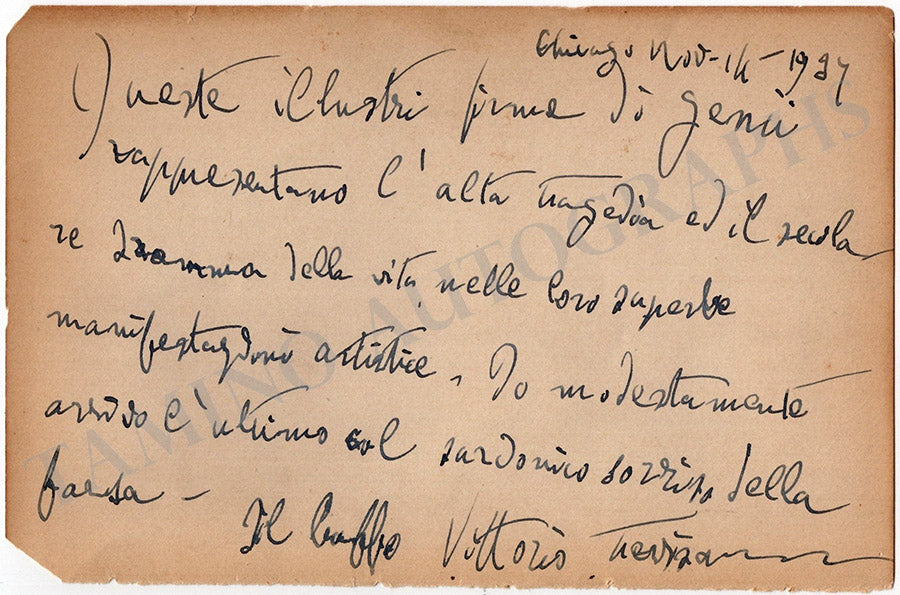 Chicago Nov-14-1937
Queste illustri firme di genii
rappresentano l'alta tragedia ed il secola
re dramma della vita nelle loro superbe
manifestazioni artistice. Io modestamente
arrivo l'ultimo col sardonico sorriso della
farsa -
Il buffo Vittorio Trevisan
TAMINO AUTOGRAPHS